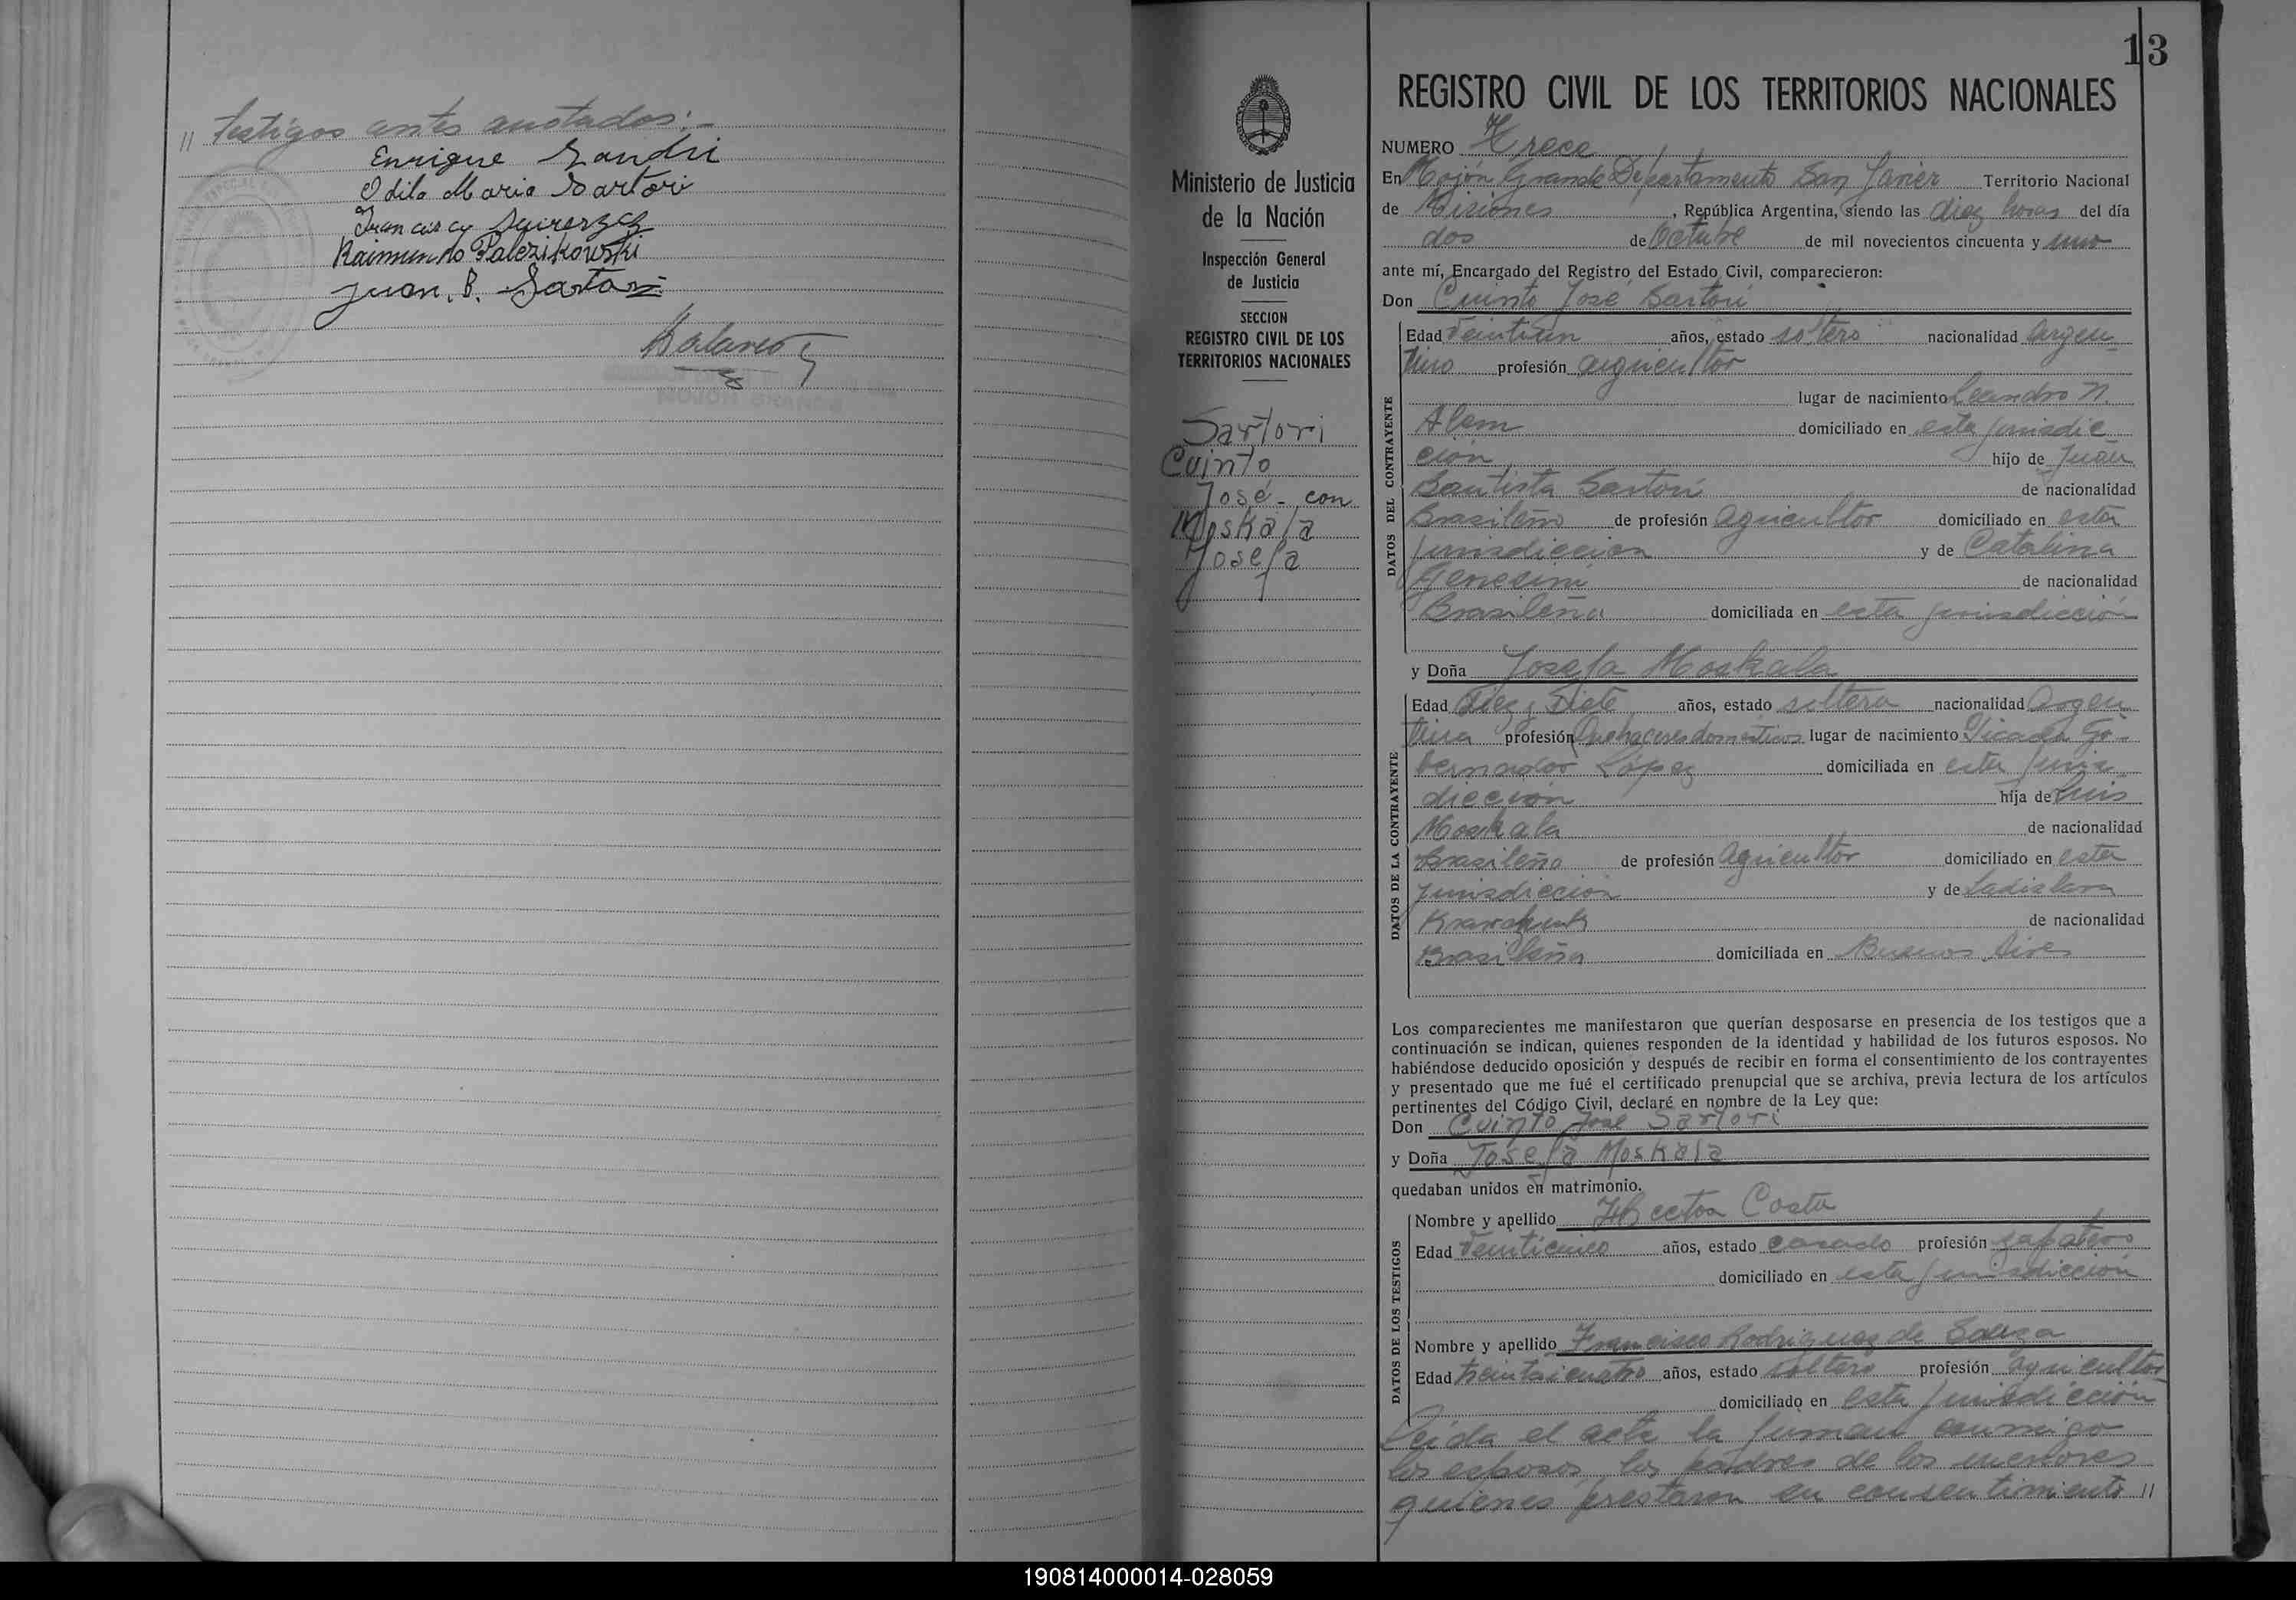 // testigos antes anotados:-
Enrique Zandri
Odilo Mario Sartori
Raimundo Palczikowski
Juan. B. Sartori
MOJON GRANDE
13
REGISTRO CIVIL DE LOS TERRITORIOS NACIONALES
Ministerio de Justicia
de la Nación
Inspección General
de Justicia
SECCION
REGISTRO CIVIL DE LOS
TERRITORIOS NACIONALES
Sartori
Cuinto
José - con
Moskala
Josefa
NUMERO Trece
En Mojón Grande Departamento San Javier Territorio Nacional
de Misiones, República Argentina, siendo las diez horas del día
dos de Octubre de mil novecientos cincuenta y uno
ante mí, Encargado del Registro del Estado Civil, comparecieron:
Don Cuinto José Sartori
DATOS DEL CONTRAYENTE
Edad Veintiun años, estado soltero nacionalidad Argen
tino profesión agricultor
lugar de nacimiento Leandro N.
Alem domiciliado en esta jurisdic-
ción hijo de Juan
Bautista Sartori de nacionalidad
Brasileño de profesión agricultor domiciliado en esta
jurisdicción y de Catalina
de nacionalidad
Brasileña domiciliada en esta jurisdicción
y Doña Josefa Moskala
DATOS DE LA CONTRAYENTE
Edad Diez y Siete años, estado soltera nacionalidad Argen
tina profesión Quehaceres domésticos lugar de nacimiento Picada Go-
bernador López domiciliada en esta juris-
dicción hija de Luis
Moskala de nacionalidad
Brasileño de profesión Agricultor domiciliado en esta
jurisdicción y de Ladislava
de nacionalidad
Brasileña domiciliada en Buenos Aires
Los comparecientes me manifestaron que querían desposarse en presencia de los testigos que a
continuación se indican, quienes responden de la identidad y habilidad de los futuros esposos. No
habiéndose deducido oposición y después de recibir en forma el consentimiento de los contrayentes
y presentado que me fué el certificado prenupcial que se archiva, previa lectura de los artículos
pertinentes del Código Civil, declaré en nombre de la Ley que:
Don Cuinto José Sartori
y Doña Josefa Moskala
quedaban unidos en matrimonio.
DATOS DE LOS TESTIGOS
Nombre y apellido Hector Costa
Edad Veinticinco años, estado casado profesión zapatero
domiciliado en esta jurisdicción
Nombre y apellido Francisco Rodriguez de Souza
Edad treintaicuatro años, estado soltero profesión agricultor
domiciliado en esta jurisdicción
Leída el acta la firman conmigo
los esposos, los padres de los menores
quienes prestaron su consentimiento //
190814000014-028059